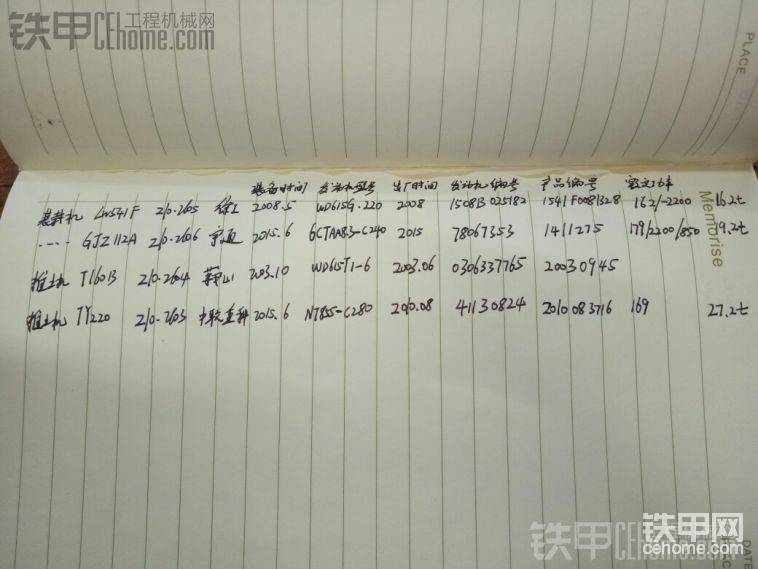 铁甲 工程机械网
CEhome.com
PLACE
装备时间 发动机型号 出厂时间 发动机编号 产品编号 额定功率
装载机 LW541F Z10-2605 徐工 2008.5 WD615G.220 2008 1508B025182 1541F0081328 162/-2200 16.2t
---- GJZ112A Z10-2606 宇通 2015.6 6CTAA8.3-C240 2015 78067353 1411275 179/2200/850 19.2t
推土机 T160B Z10-2604 黄工 2003.10 WD615T1-6 2003.06 0306337765 20030945
推土机 TY220 Z10-2603 中联重科 2015.6 NT855-C280 2010.08 41130824 2010083716 169 27.2t
Memorise
铁甲 CEhome.com
铁甲网
www.cehome.com
DATE